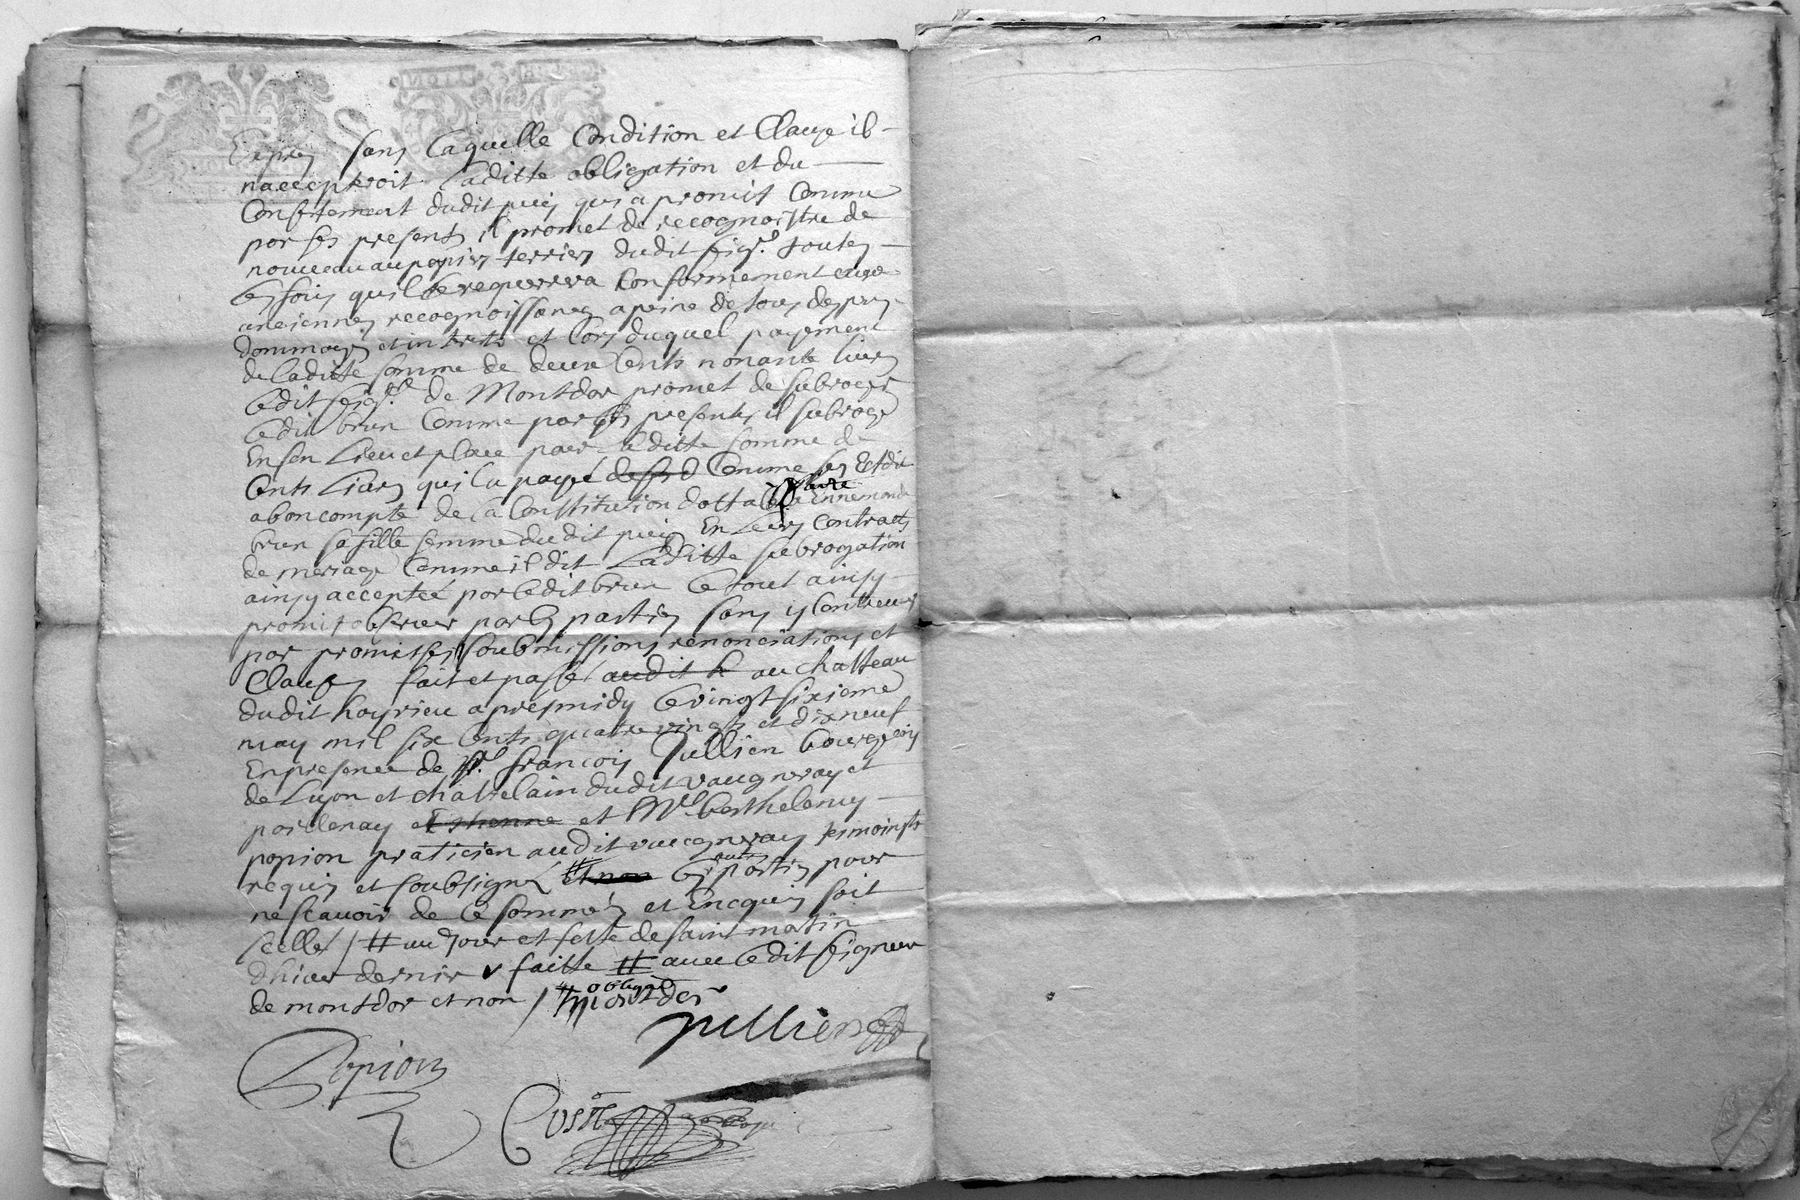 Expres sans laquelle Condition et Clause il
n'accepteroit Laditte obligation et du
Consentement dudit puis qui a promis Comme
par ses presentes il promet de recognoistre de
nouveau au papier terrier dudit seigr. toutes
les fois quil le requerrera Conformement aux
anciennes recognoissances a peine de tous despens
dommages et interests et lors duquel payement
de laditte somme de deux Cents nonante livres
ledit seigr. de Montdor promet de subroger
ledit brun Comme par ses presentes il subroge
En son Lieu et place pour laditte somme de
Cents Livres qui la payé Comme
a bon compte de la Constitution dottalle Ennemonde
brun sa fille femme dudit puis En Leurs Contracts
de mariage Comme il dit Laditte subrogation
ainsy acceptée par ledit brun le tout ainsy
promis observer par les parties sans y Contrevenir
par promesses soubmissions renonciations et
Clauses fait et passé audit h au chatteau
dudit hoyrieu apres midy le vingt sixieme
may mil six Cents quatre vingts et dix neuf
En presence de sr. françois Jullien bourgeois
de Lyon et chastelain dudit vaugneray et
pollenay et Estienne et Me berthelemy
popion praticien audit vaugneray tesmoins
requis et soubsignés # et non les autres parties pour
ne scavoir de Ce sommés et Enquis soit
scellé / # au Jour et feste de saint martin
dhiver dernier v faitte # avec ledit seigneur
de montdor et non / # obligé
montdor
Jullien
Popion
Coste